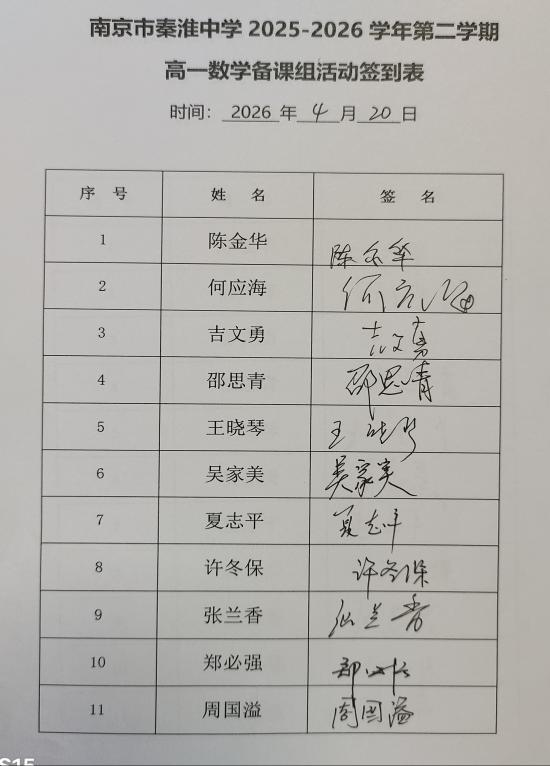 南京市秦淮中学 2025-2026 学年第二学期
高一数学备课组活动签到表
时间： 2026 年 4 月 20 日
序 号 姓 名 签 名
1 陈金华 陈金华
2 何应海 何应海
3 吉文勇 吉文勇
4 邵思青 邵思青
5 王晓琴 王晓琴
6 吴家美 吴家美
7 夏志平 夏志平
8 许冬保 许冬保
9 张兰香 张兰香
10 郑必强 郑必强
11 周国溢 周国溢